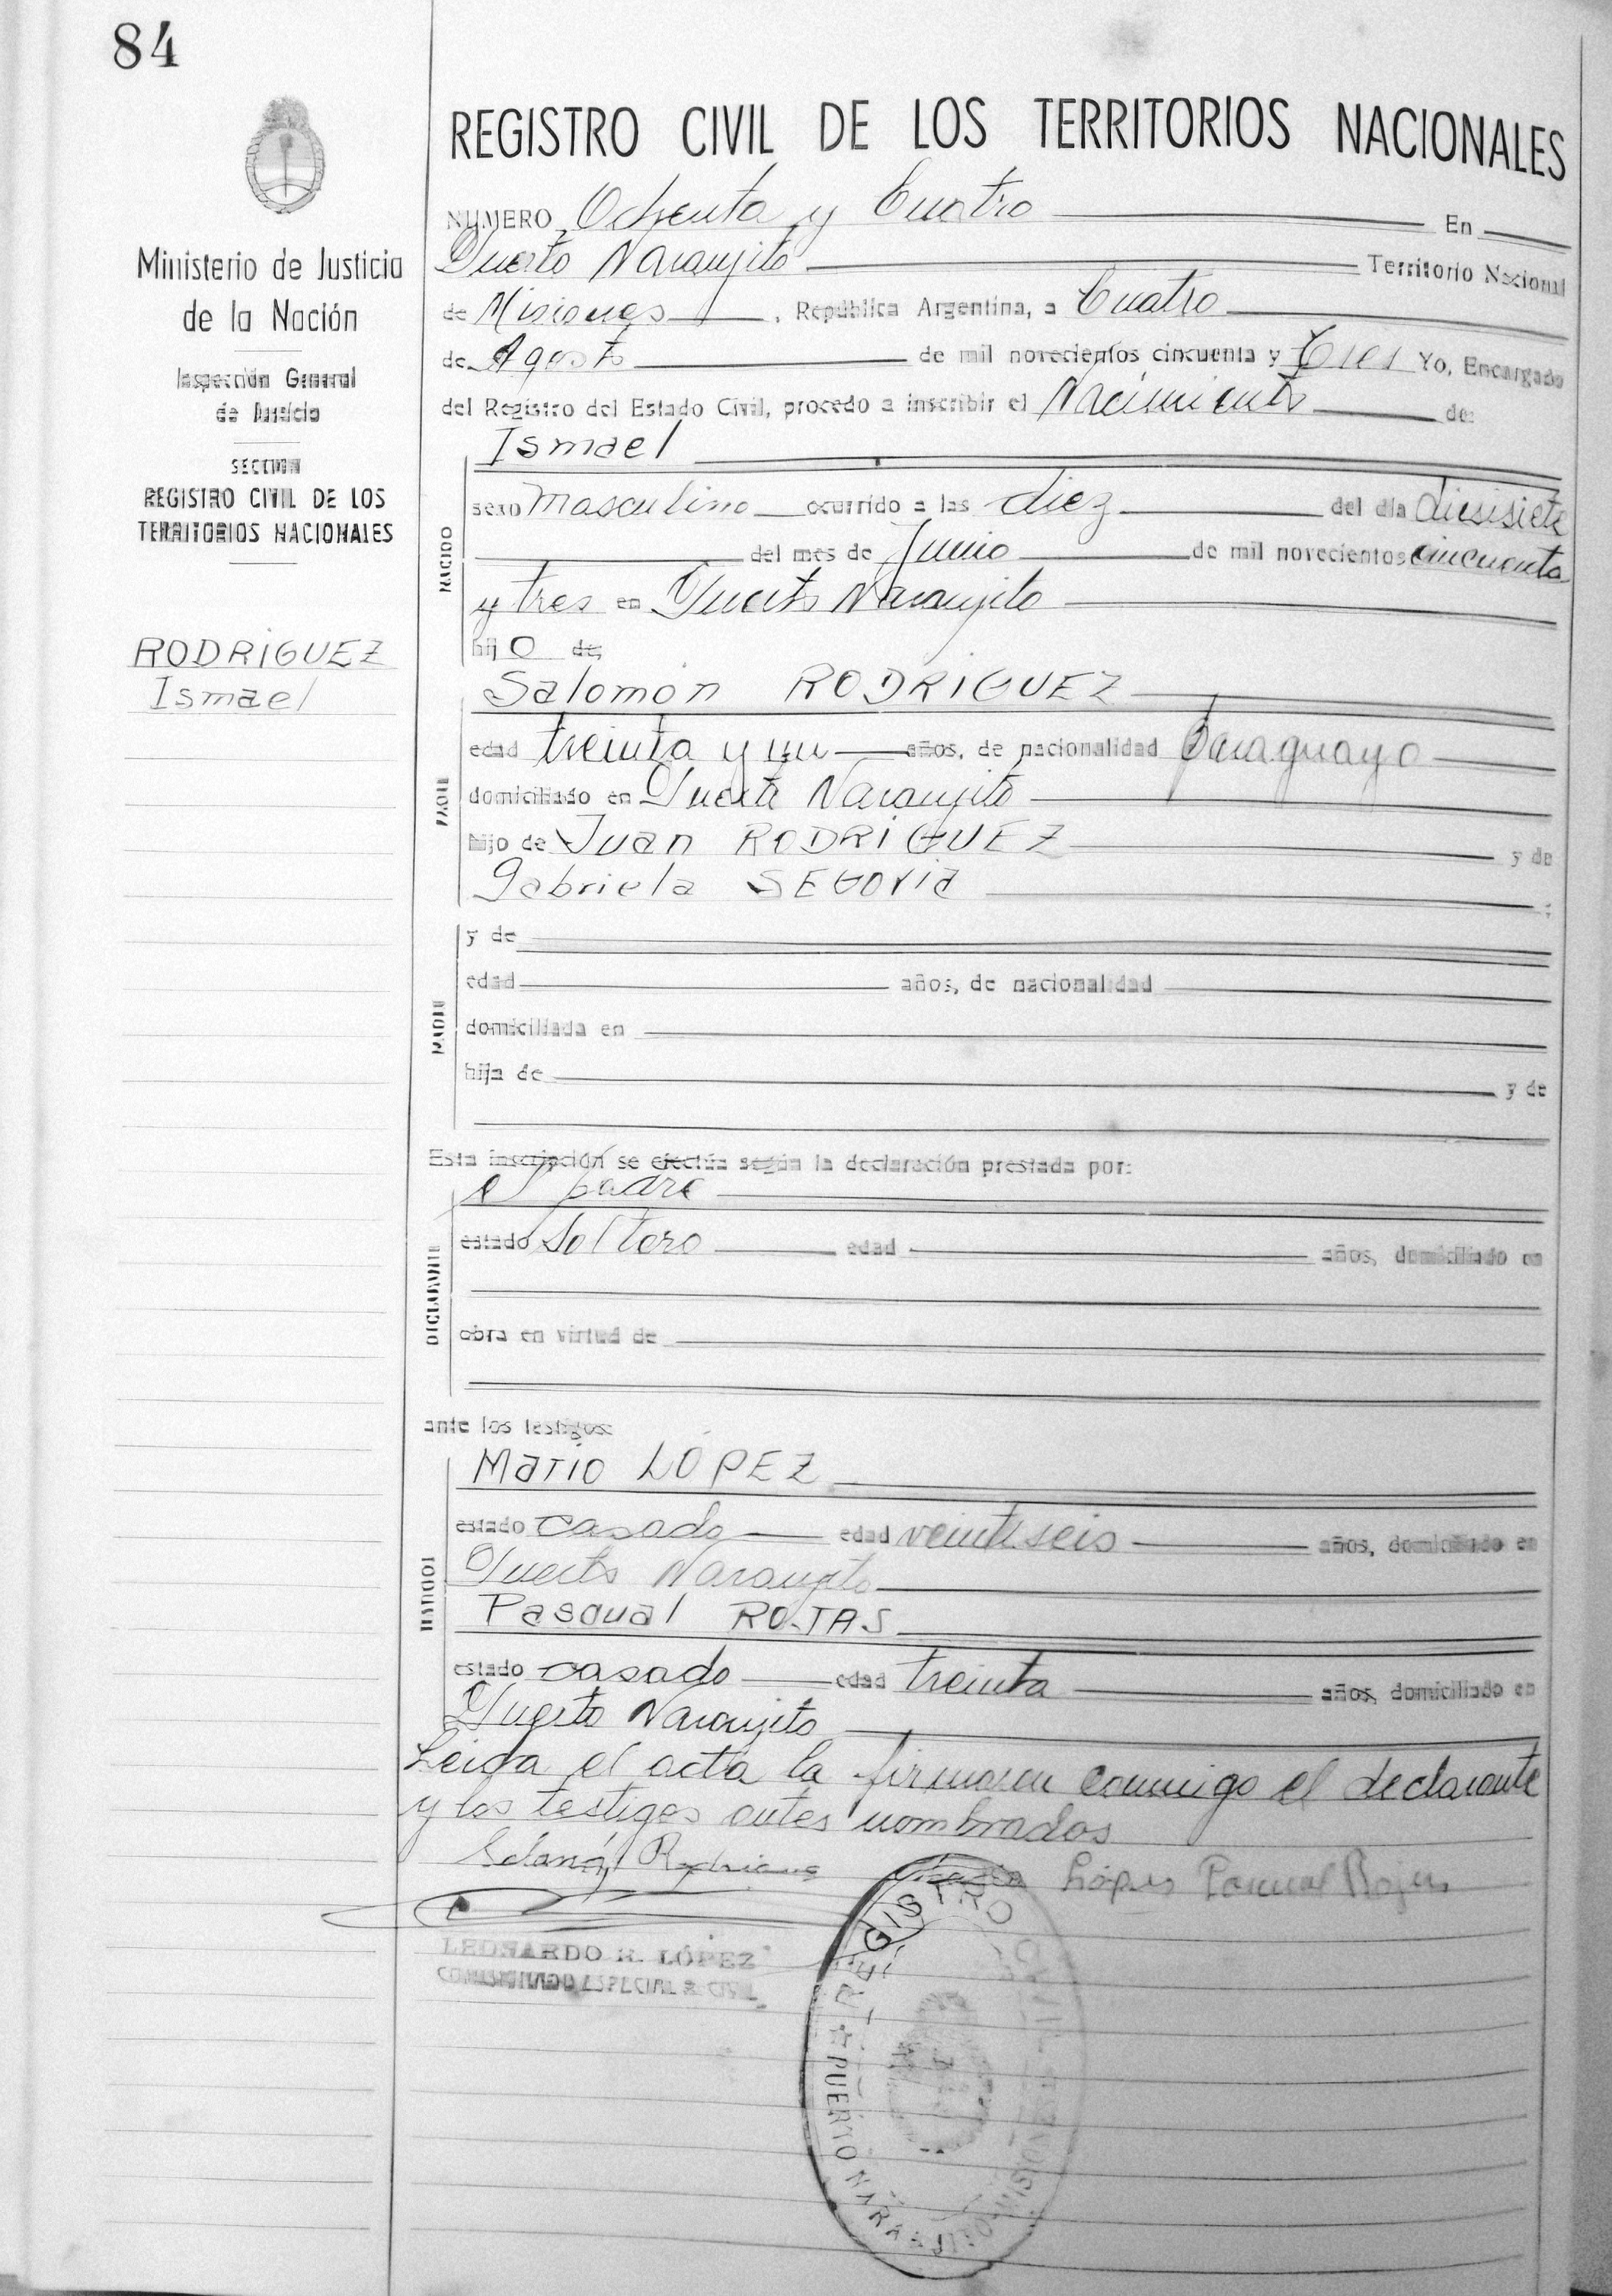 84
REGISTRO CIVIL DE LOS TERRITORIOS NACIONALES
Ministerio de Justicia
de la Nación
Inspección General
de Justicia
SECCION
REGISTRO CIVIL DE LOS
TERRITORIOS NACIONALES
RODRIGUEZ
Ismael
NUMERO Ochenta y Cuatro En
Puerto Naranjito Territorio Nacional
de Misiones, República Argentina, a Cuatro
de Agosto de mil novecientos cincuenta y Tres Yo, Encargado
del Registro del Estado Civil, procedo a inscribir el Nacimiento de:
Ismael
NACIDO
sexo masculino ocurrido a las diez del día diesisiete
del mes de Junio de mil novecientos cincuenta
y tres en Puerto Naranjito
hij o de
Salomón RODRIGUEZ
PADRE
edad treinta y un años, de nacionalidad paraguayo
domiciliado en Puerto Naranjito
hijo de Juan RODRIGUEZ y de
Gabriela SEGOVIA ;
MADRE
y de
edad años, de nacionalidad
domiciliada en
hija de y de
Esta inscripción se efectúa según la declaración prestada por:
el padre
DECLARANTE
estado soltero edad años, domiciliado en
obra en virtud de
ante los testigos:
Mario LÓPEZ
TESTIGOS
estado casado edad veintiseis años, domiciliado en
Puerto Naranjito
Pascual ROJAS
estado casado edad treinta años, domiciliado en
Puerto Naranjito
Leida el acta la firmaron conmigo el declarante
y los testigos antes nombrados
Rodriguez López Pascual Rojas
LEONARDO R. LÓPEZ
ESPECIAL R. CIVIL
REGISTRO CIVIL
PUERTO NARANJITO MISIONES